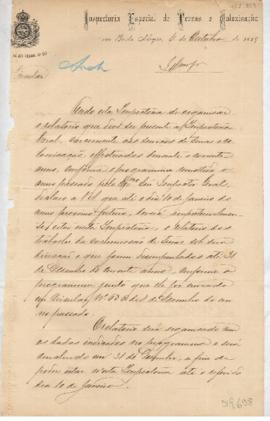 Inspectoria Especial de Terras e Colonisação
em Porto Alegre, 6 de Outubro de 1889
Circular
Illmo Snr
Tendo esta Inspectoria de organisar
o relatorio que deve ser presente a Inspectoria
Geral, concernente aos serviços de terras e co-
lonisação, effectuados durante o corrente
anno, conforme o programma remettido o
anno passado pelo Exmo Snr Inspector Geral,
declaro a VSª que até o dia 10 de Janeiro do
anno proximo futuro, deverá
estar nesta Inspectoria, o relatorio dos
trabalhos da commissão de Terras sob sua
direcção e que forem desempenhados até 31
de Dezembro do corrente anno, conforme o
programma junto que lhe foi enviado
em Circular Nº de de Dezembro do an-
no passado.
O relatorio será organisado com
os dados indicados no programma e será
em 31 de Dezembro, a fim de
poder estar nesta Inspectoria até o referido
dia 10 de Janeiro.